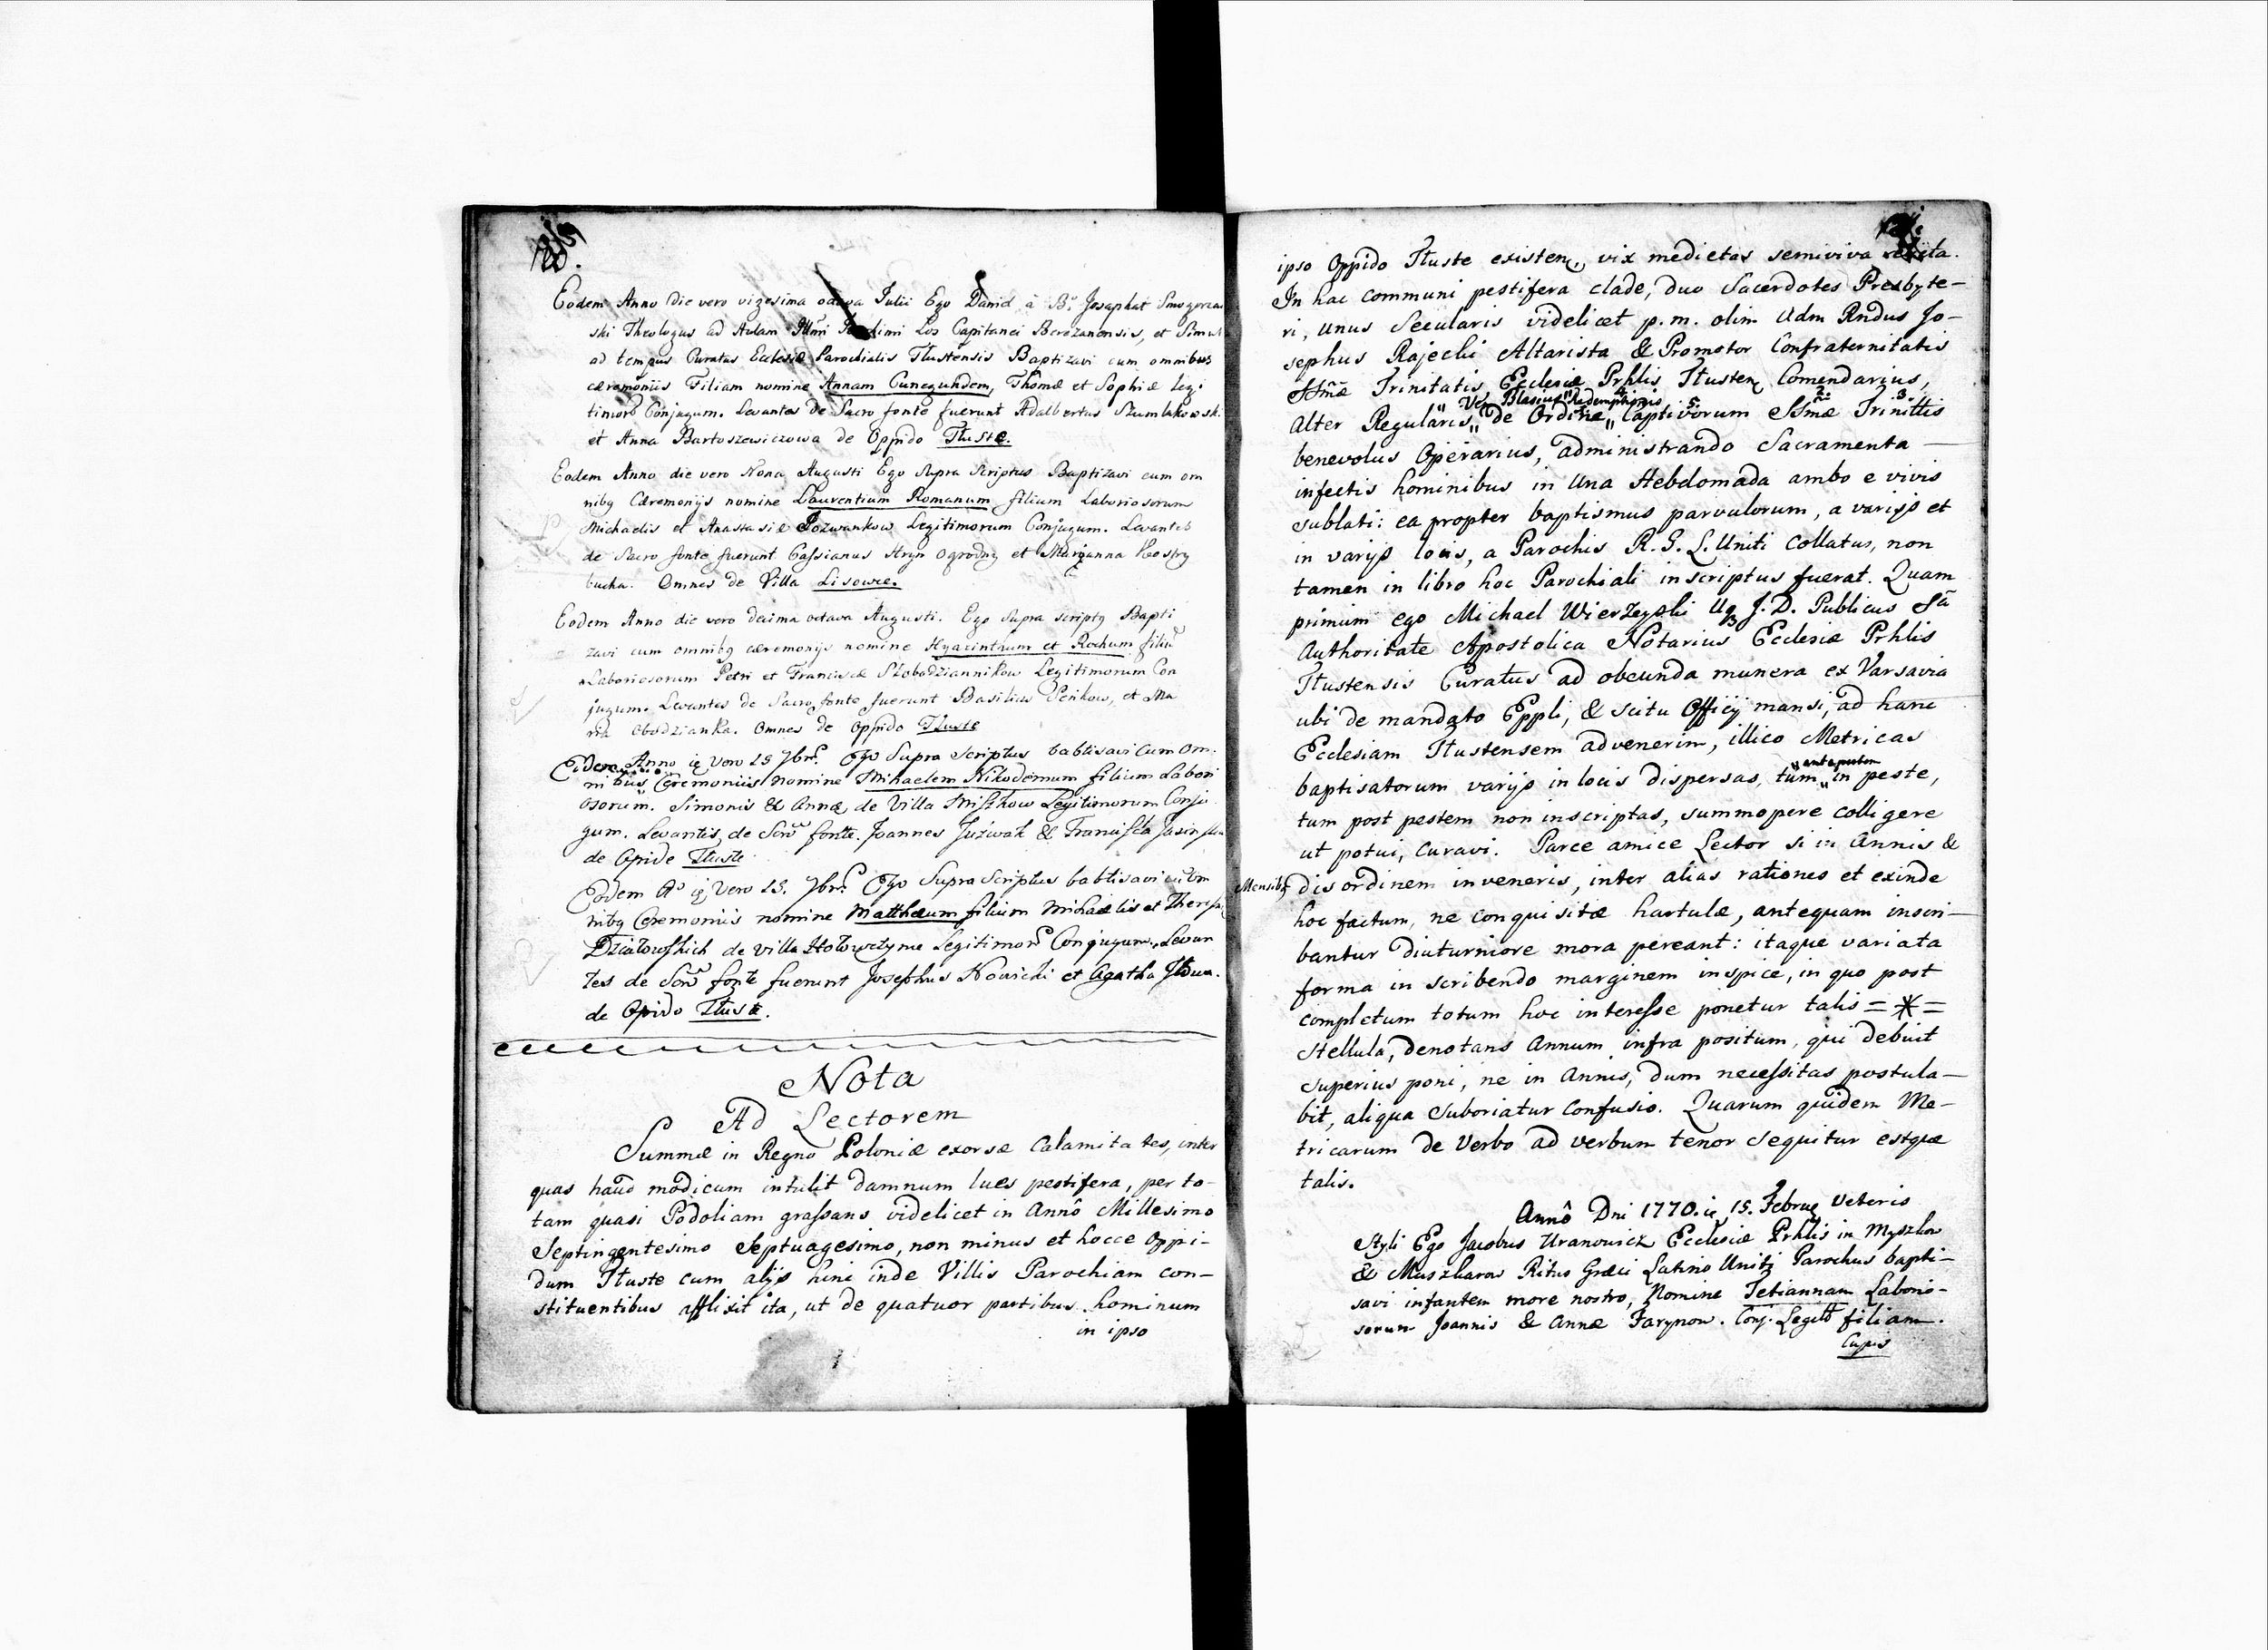 Eodem Anno die vero vigesima octava Julii Ego David à B. Josaphat
ski Theologus ad Aulam Los Capitanei Berezanensis, et Simul
ad tempus Curatus Ecclesiæ Parochialis Tłustensis Baptizavi cum omnibus
cæremoniis Filiam nomine Annam Cunegundem, Thomæ et Sophiæ legi
timorū Conjugum. Levantes de Sacro fonte fuerunt Adalbertus Szumlakowski
et Anna Bartoszewiczowa de Oppido Tłuste.
Eodem Anno die vero Nona Augusti Ego Supra Scriptus Baptizavi cum om
nibq Cæremonijs nomine Laurentium Romanum filium Laboriosorum
Michaelis et Anastasiæ Pozwankow Legitimorum Conjugum. Levantes
de Sacro fonte fuerunt Cassianus Hryn Ogrodny et Maryanna
bucha. Omnes de Villa Lisowce.
Eodem Anno die vero decima octava Augusti. Ego Supra scriptq Bapti
zavi cum omnibq cæremonijs nomine Hyacinthum et Rochum filiū
Laboriosorum Petri et Franciscæ Słobodziannikow Legitimorum Con
jugum. Levantes de Sacro fonte fuerunt Basilius Penkow, et Ma
ria Obodzianka. Omnes de Oppido Tłuste
Eodem Anno vero 25 7bris Ego Supra Scriptus babtisavi Cum Om:
nibus Ceremoniis nomine Mihaelem Nikodemum filium Labori
osorum. Simonis & Annæ de Villa Miszkow Legitimorum Conju
gum. Levantis de Scrō fonte. Joannes Juźwak & Francisca
de Opide Tłuste
Eodem Ao Vero 25. 7bris Ego Supra Scriptus babtisavi cū Om
nibq Ceremoniis nomine Matthæum filium Michaelis et Theresæ
Działowskich de villa Hołowczyńce Legitimorū Conjugum. Levan
tes de Scrō fonte fuerunt Josephus Nowicki et Agatha
de Opido Tłuste.
Nota
Ad Lectorem
Summæ in Regno Poloniæ exorsæ Calamitates, inter
quas haud modicum intulit damnum lues pestifera, per to-
tam quasi Podoliam grassans videlicet in Annô Millesimo
Septingentesimo Septuagesimo, non minus et hocce Oppi-
dum Tłuste cum alijs hinc inde Villis Parochiam con-
stituentibus afflixit ita, ut de quatuor partibus hominum
in ipso
ipso Oppido Tłuste existen, vix medietas semiviva
In hac communi pestifera clade, duo Sacerdotes Presbyte-
ri, Unus Secularis videlicet p.m. olim Adm Rndus Jo-
sephus Rajecki Altarista & Promotor Confraternitatis
SSmæ Trinitatis Ecclesiæ Prhlis Tłusten Comendarius,
Ven Blasius Redemptionis
Alter Regularis de Ordine Captivorum SSmæ Trinittis
benevolus Operarius, administrando Sacramenta
infectis hominibus in Una Hebdomada ambo e vivis
sublati: ea propter baptismus parvulorum, a varijs et
in varijs locis, a Parochis R. G. L. Uniti Collatus, non
tamen in libro hoc Parochiali inscriptus fuerat. Quam
primum ego Michael Wierzeyski J. D. Publicus Sā
Authoritate Apostolica Notarius Ecclesiæ Prhlis
Tłustensis Curatus ad obeunda munera ex Varsavia
ubi de mandato Eppli, & scitu Officij mansi, ad hanc
Ecclesiam Tłustensem advenerim, illico Metricas
ante pestem
baptisatorum varijs in locis dispersas, tum in peste,
tum post pestem non inscriptas, summopere colligere
ut potui, curavi. Parce amice Lector si in Annis &
Mensibq disordinem inveneris, inter alias rationes et exinde
hoc factum, ne conquisitæ hartulæ, antequam inscri-
bantur diuturniore mora pereant: itaque variata
forma in scribendo marginem inspice, in quo post
completum totum hoc interesse ponetur talis = * =
Stellula, denotans Annum infra positum, qui debuit
superius poni, ne in Annis, dum necessitas postula-
bit, aliqua suboriatur Confusio. Quarum quidem Me-
tricarum de Verbo ad verbum tenor sequitur estque
talis.
Annô Dni 1770. 15. Febru Veteris
Styli Ego Jacobus Uranowicz Ecclesiæ Prhlis in Myszkow
& Muszkarow Ritus Græci Latino Uniti Parochus bapti-
savi infantem more nostro, Nomine Tetiannam Laborio-
sorum Joannis & Annæ Farynow. Conj. Legitō filiam.
Cujus